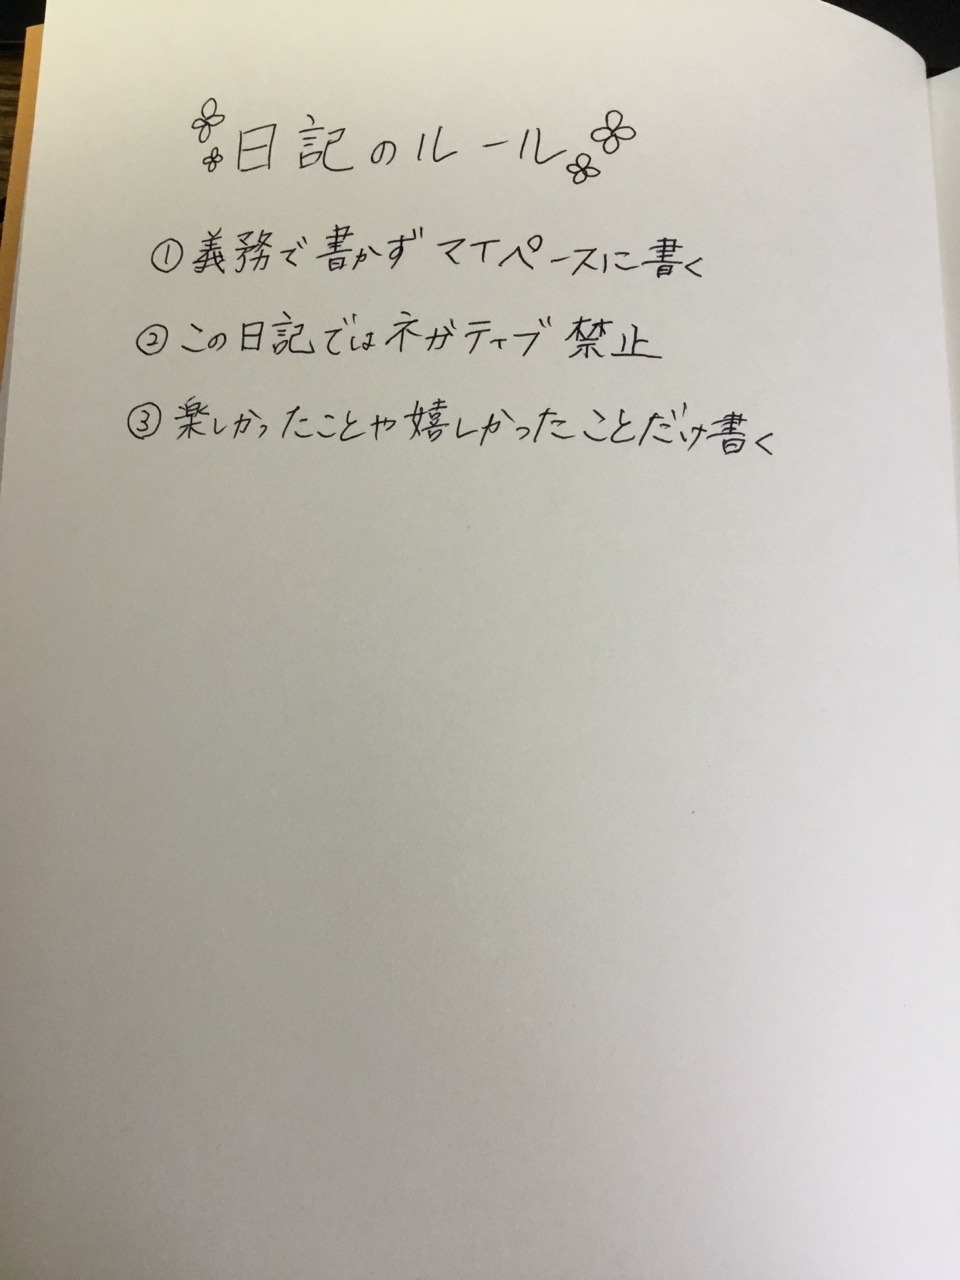 日記のルール
①義務で書かずマイペースに書く
②この日記ではネガティブ禁止
③楽しかったことや嬉しかったことだけ書く